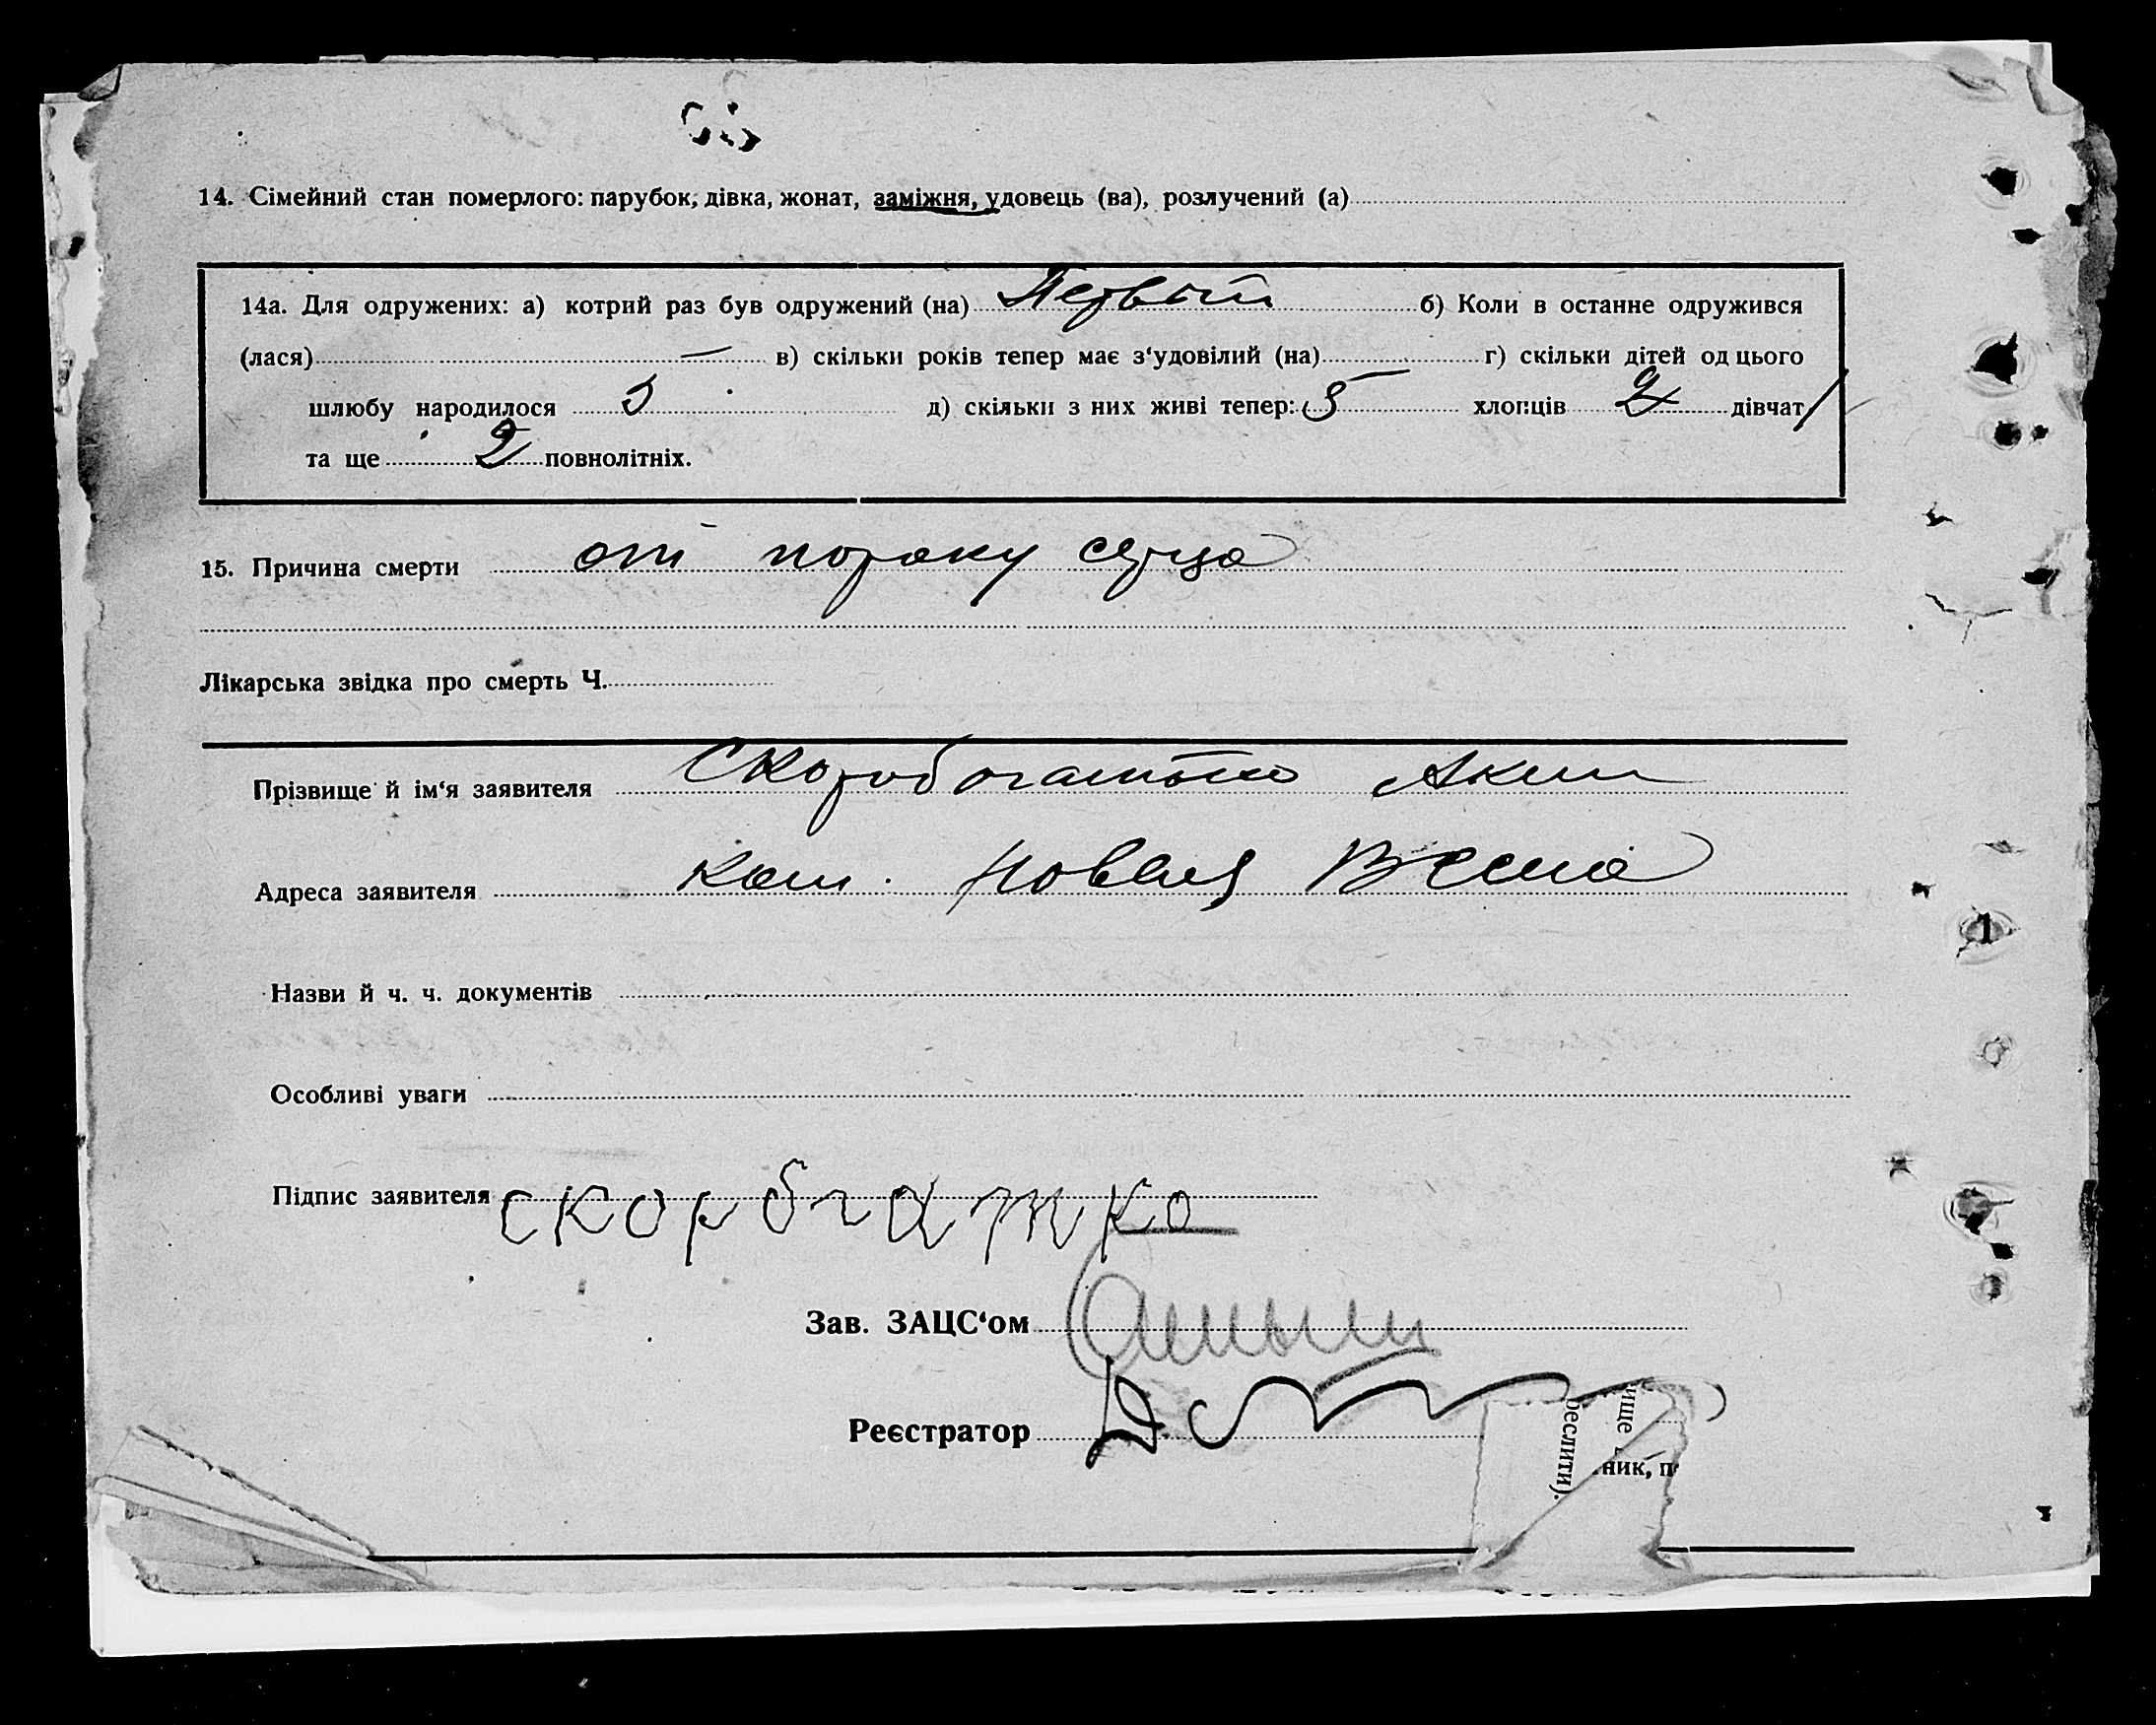 14. Сімейний стан померлого: парубок, дівка, жонат, заміжня, удовець (ва), розлучений (а)
14а. Для одружених: а) котрий раз був одружений (на) Первый б) Коли в останне одружився
(лася) — в) скільки років тепер має з‘удовілий (на) — г) скільки дітей од цього
шлюбу народилося 5 д) скільки з них живі тепер: 5 хлопців 2 дівчат 1
та ще 2 повнолітніх.
15. Причина смерти от пороку серца
Лікарська звідка про смерть Ч.
Прізвище й ім‘я заявителя Скоробогатько Аким
Адреса заявителя Новая Весна
Назви й ч. ч. документів
Особливі уваги
Підпис заявителя скорбгатко
Зав. ЗАЦС‘ом
Реєстратор
ище
реслити).
ник, п
1